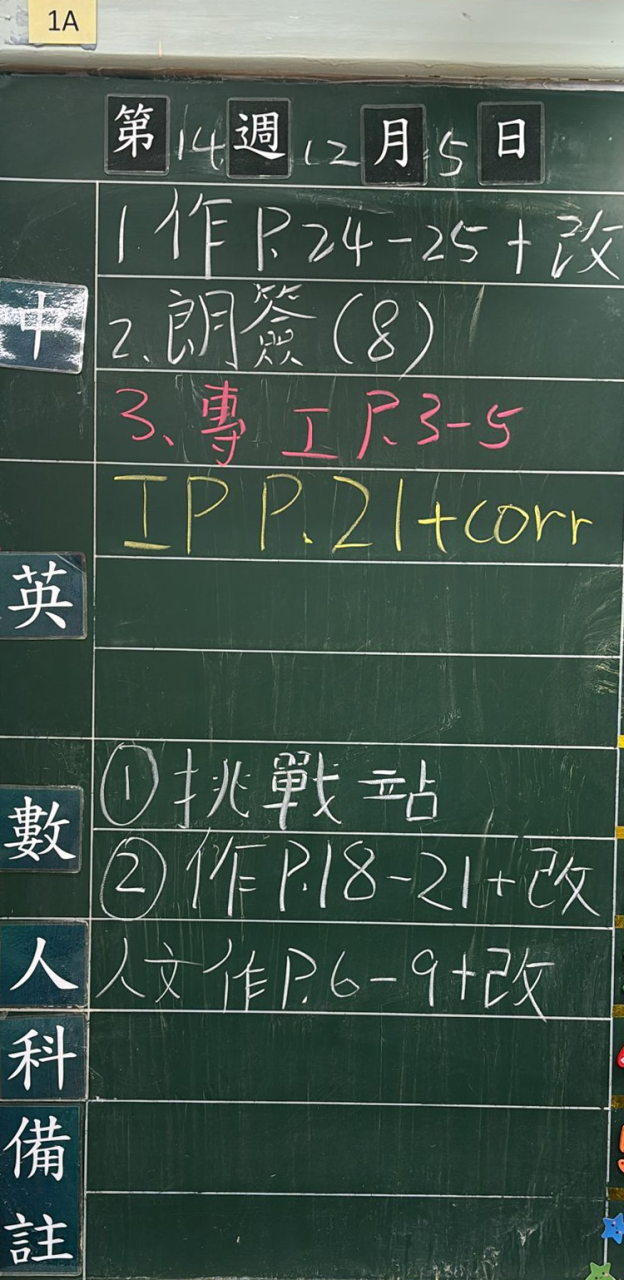 1A
第14週12月5日
中
1.作P.24-25+改
2.朗簽(8)
3、專工P.3-5
英
IP P.21+corr
數
①挑戰站
②作P.18-21+改
人
人文作P.6-9+改
科
備註